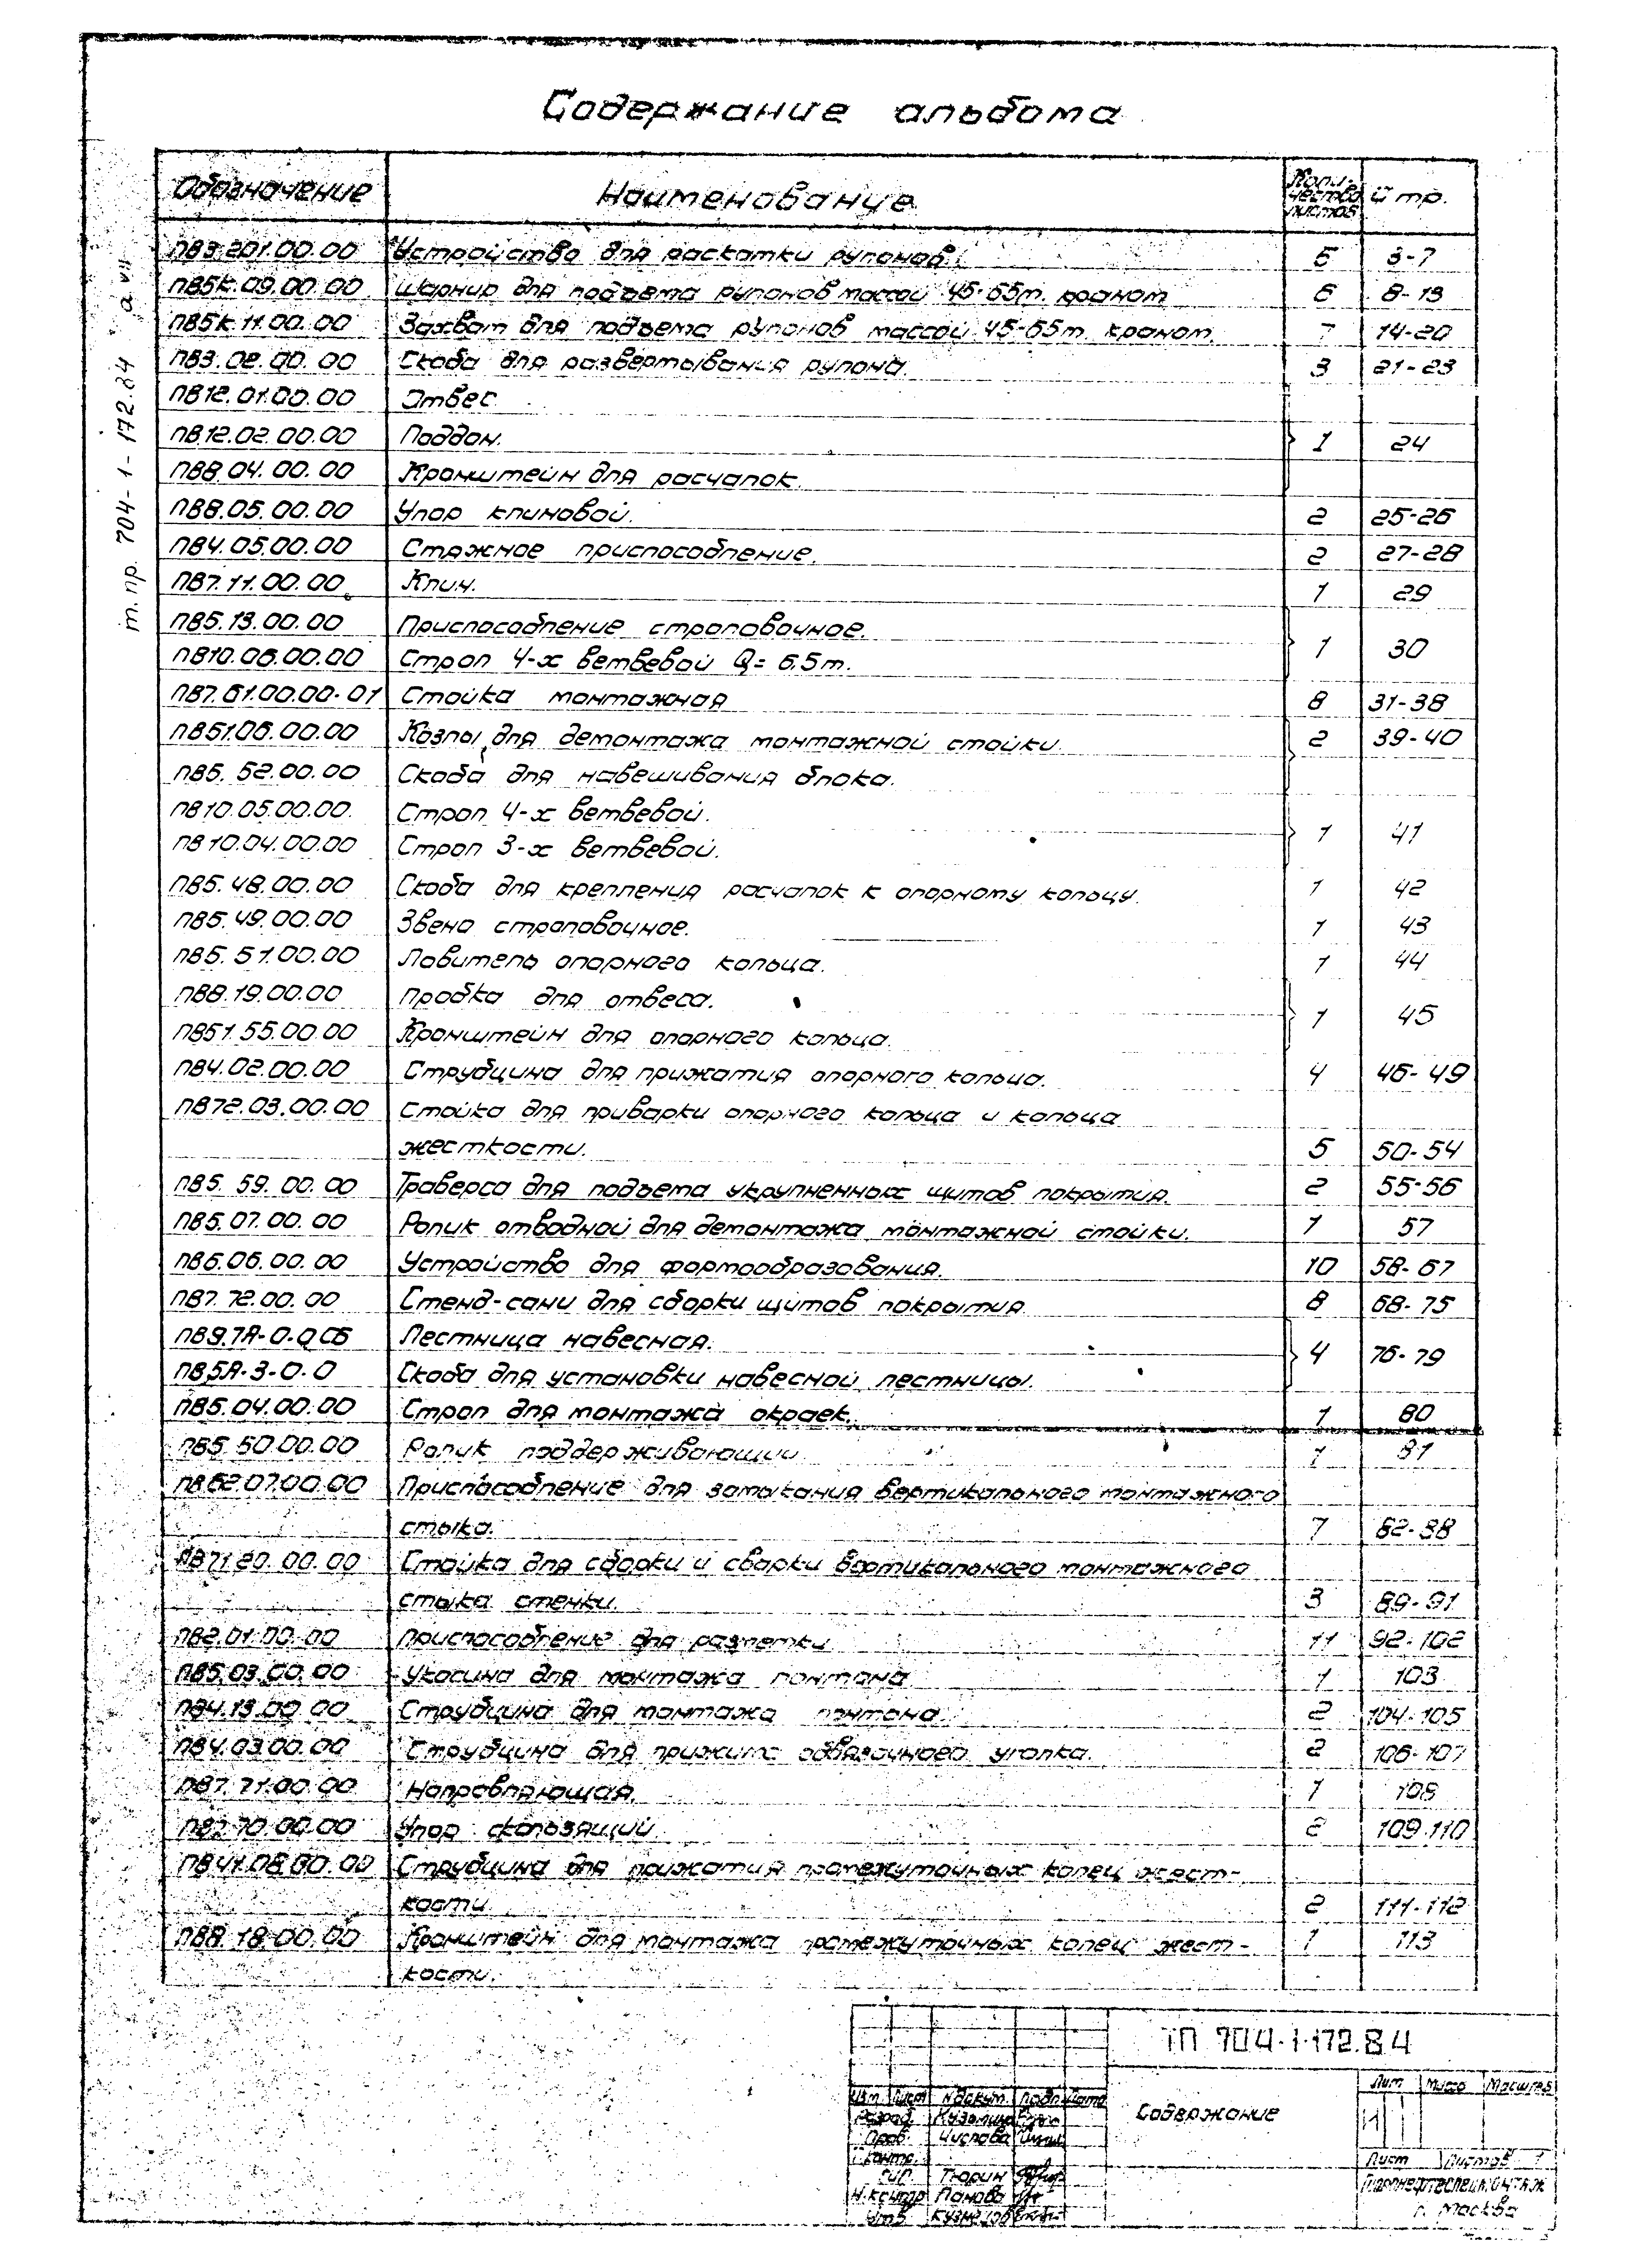 Содержание альбома
т. пр. 704-1-172.84 а VII
Обозначение Наименование Коли-чество листов Стр.
ПВ3.201.00.00 Устройство для раскатки рулонов. 5 3-7
ПВ5К.09.00.00 Шарнир для подъема рулонов массой 45-65т. краном 6 8-13
ПВ5К.11.00.00 Захват для подъема рулонов массой 45-65т. краном. 7 14-20
ПВ3.02.00.00 Скоба для развертывания рулона. 3 21-23
ПВ12.01.00.00 Отвес
ПВ12.02.00.00 Поддон. 1 24
ПВ8.04.00.00 Кронштейн для расчалок.
ПВ8.05.00.00 Упор клиновой. 2 25-26
ПВ4.05.00.00 Стяжное приспособление. 2 27-28
ПВ7.11.00.00 Клин. 1 29
ПВ5.13.00.00 Приспособление строповочное.
1 30
ПВ10.06.00.00 Строп 4-х ветвевой Q= 6.5т.
ПВ7.61.00.00-01 Стойка монтажная 8 31-38
ПВ51.06.00.00 Козлы для демонтажа монтажной стойки. 2 39-40
ПВ5.52.00.00 Скоба для навешивания блока.
ПВ10.05.00.00. Строп 4-х ветвевой.
1 41
ПВ10.04.00.00 Строп 3-х ветвевой.
ПВ5.48.00.00 Скоба для крепления расчалок к опорному кольцу. 1 42
ПВ5.49.00.00 Звено строповочное. 1 43
ПВ5.51.00.00 Ловитель опорного кольца. 1 44
ПВ8.19.00.00 Пробка для отвеса.
1 45
ПВ51.55.00.00 Кронштейн для опорного кольца.
ПВ4.02.00.00 Струбцина для прижатия опорного кольца. 4 46-49
ПВ72.03.00.00 Стойка для приварки опорного кольца и кольца
жесткости. 5 50-54
ПВ5.59.00.00 Траверса для подъема укрупненных щитов покрытия. 2 55-56
ПВ5.07.00.00 Ролик отводной для демонтажа монтажной стойки. 1 57
ПВ6.06.00.00 Устройство для формообразования. 10 58-67
ПВ7.72.00.00 Стенд-сани для сборки щитов покрытия. 8 68-75
ПВ9.7А-0-0СБ Лестница навесная.
4 76-79
ПВ5А-3-0-0 Скоба для установки навесной лестницы.
ПВ5.04.00.00 Строп для монтажа окраек. 1 80
ПВ5.50.00.00 Ролик поддерживающий. 1 81
ПВ62.07.00.00 Приспособление для замыкания вертикального монтажного
стыка. 7 82-88
ПВ71.20.00.00 Стойка для сборки и сварки вертикального монтажного
стыка стенки. 3 89-91
ПВ2.01.00.00 Приспособление для разметки 11 92-102
ПВ5.03.00.00 Укосина для монтажа понтона 1 103
ПВ4.13.00.00 Струбцина для монтажа понтона. 2 104-105
ПВ4.03.00.00 Струбцина для прижима обвязочного уголка. 2 106-107
ПВ7.71.00.00 Направляющая. 1 108
ПВ7.70.00.00 Упор скользящий 2 109-110
ПВ41.08.00.00 Струбцина для прижатия промежуточных колец жест-
кости. 2 111-112
ПВ8.18.00.00 Кронштейн для монтажа промежуточных колец жест- 1 113
кости.
ТП 704-1-172.84
Содержание
Лит Масса Масштаб
И
Изм. Лист № докум. Подп. Дата
Разраб. Кузьмина
Пров. Числова
Т.контр.
ГИП. Тюрин
Н.контр Панова
Утв. Кузнецов
Лист Листов 1
Гипронефтеспецмонтаж
г. Москва